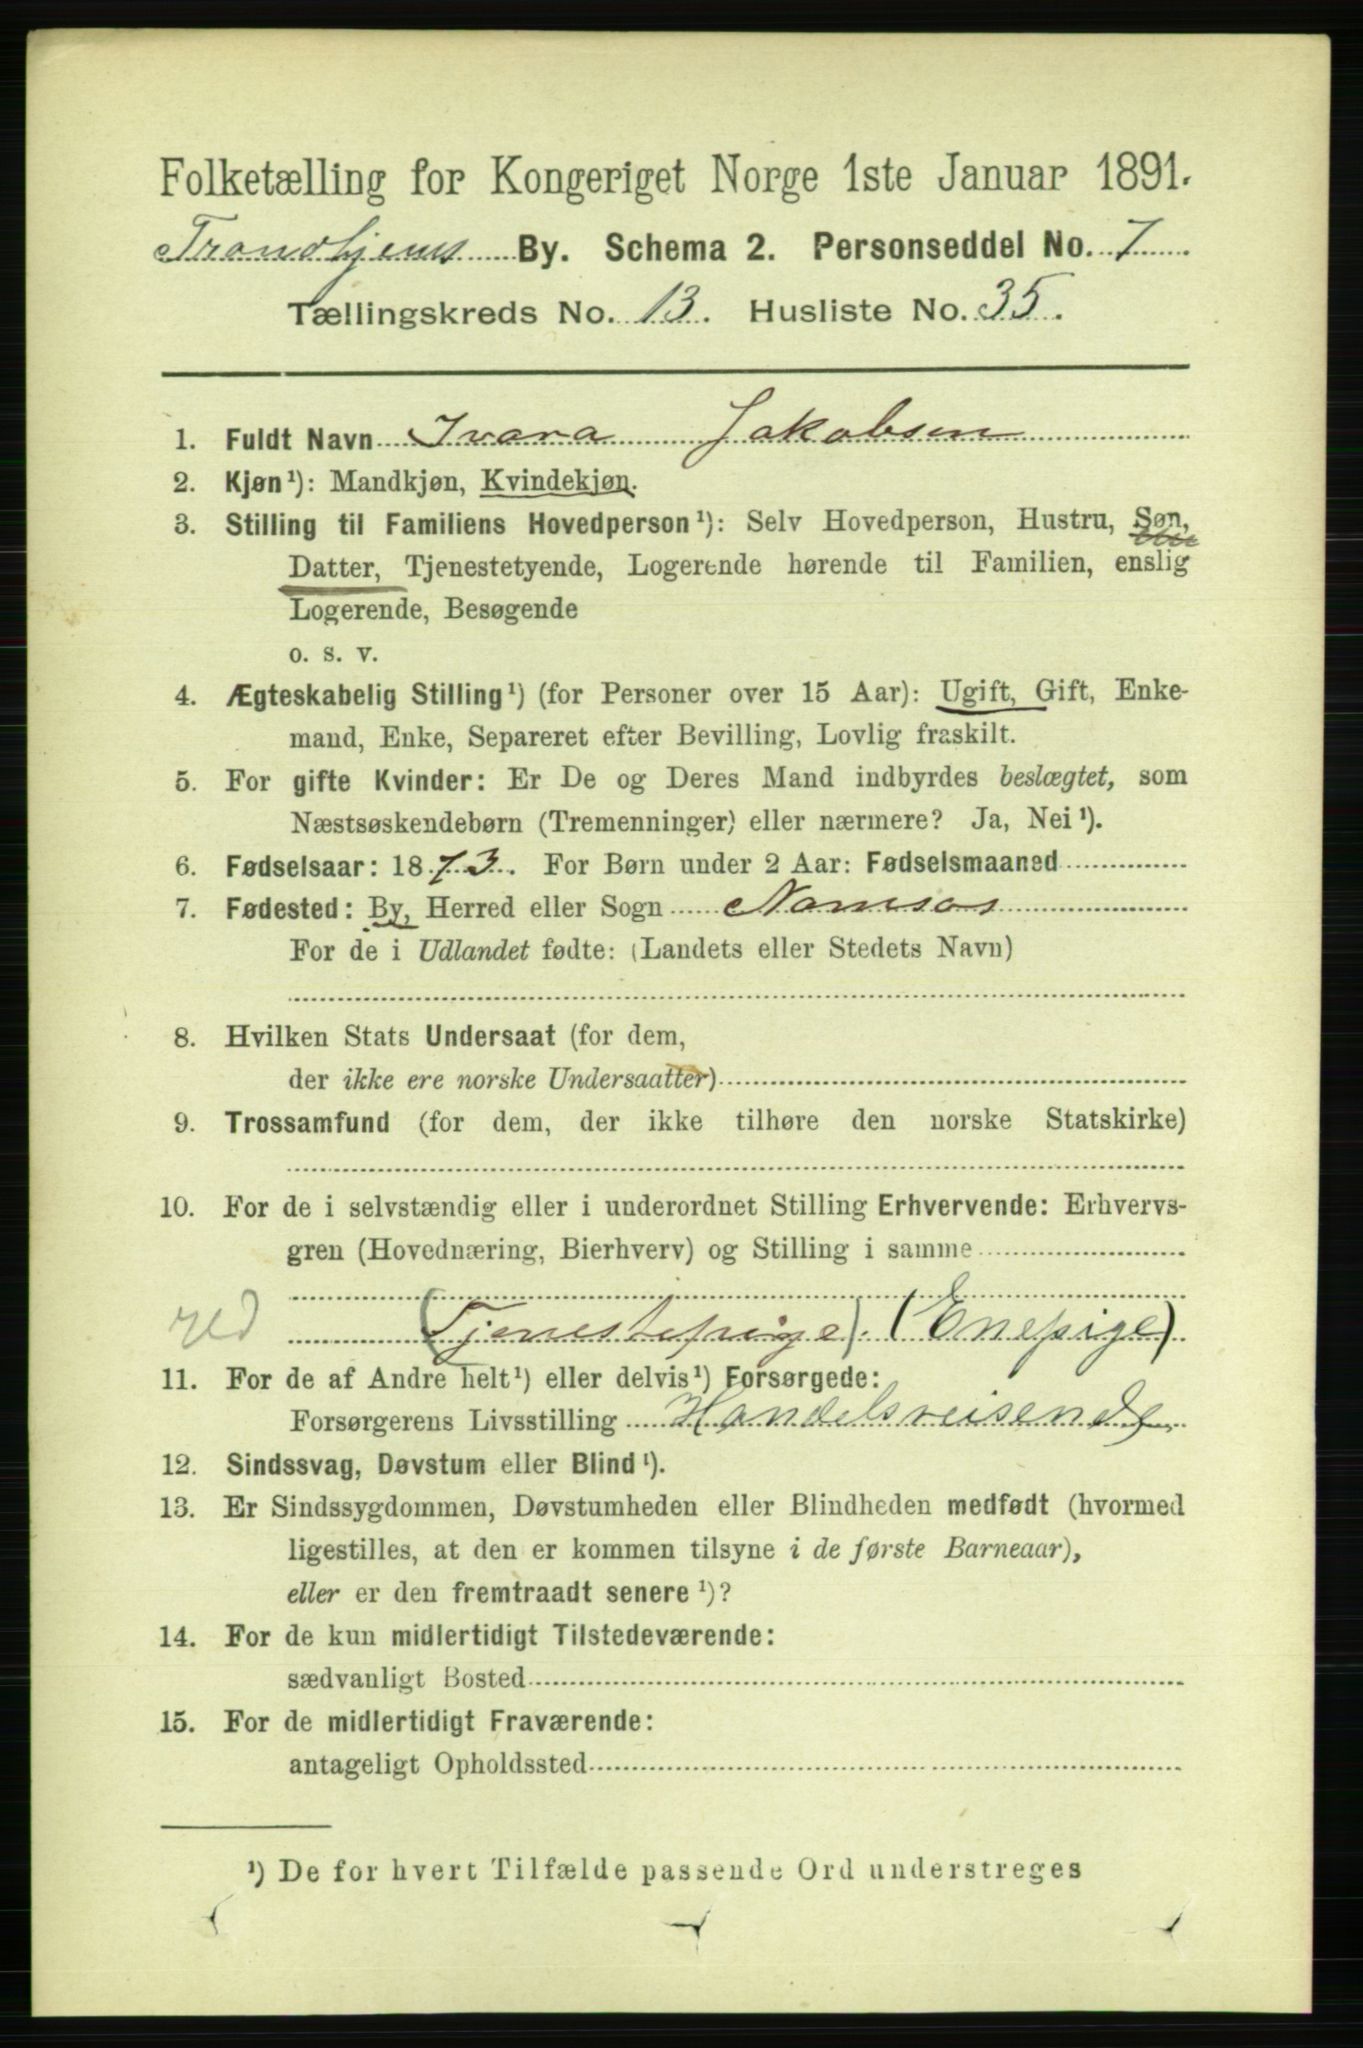 Folketælling for Kongeriget Norge 1ste Januar 1891.
Trondhjems By. Schema 2. Personseddel No. 7
Tællingskreds No. 13. Husliste No. 35.
1. Fuldt Navn Ivara Jakobsen
2. Kjøn¹): Mandkjøn, Kvindekjøn.
3. Stilling til Familiens Hovedperson¹): Selv Hovedperson, Hustru, Søn,
Datter, Tjenestetyende, Logerende hørende til Familien, enslig
Logerende, Besøgende
o. s. v.
4. Ægteskabelig Stilling¹) (for Personer over 15 Aar): Ugift, Gift, Enke-
mand, Enke, Separeret efter Bevilling, Lovlig fraskilt.
5. For gifte Kvinder: Er De og Deres Mand indbyrdes beslægtet, som
Næstsøskendebørn (Tremenninger) eller nærmere? Ja, Nei¹).
6. Fødselsaar: 1873. For Børn under 2 Aar: Fødselsmaaned
7. Fødested: By, Herred eller Sogn Namsos
For de i Udlandet fødte: (Landets eller Stedets Navn)
8. Hvilken Stats Undersaat (for dem,
der ikke ere norske Undersaatter)
9. Trossamfund (for dem, der ikke tilhøre den norske Statskirke)
10. For de i selvstændig eller i underordnet Stilling Erhvervende: Erhvervs-
gren (Hovednæring, Bierhverv) og Stilling i samme
red (Tjenestepige). (Enepige)
11. For de af Andre helt¹) eller delvis¹) Forsørgede:
Forsørgerens Livsstilling Handelsreisende
12. Sindssvag, Døvstum eller Blind¹).
13. Er Sindssygdommen, Døvstumheden eller Blindheden medfødt (hvormed
ligestilles, at den er kommen tilsyne i de første Barneaar),
eller er den fremtraadt senere¹)?
14. For de kun midlertidigt Tilstedeværende:
sædvanligt Bosted
15. For de midlertidigt Fraværende:
antageligt Opholdssted
¹) De for hvert Tilfælde passende Ord understreges